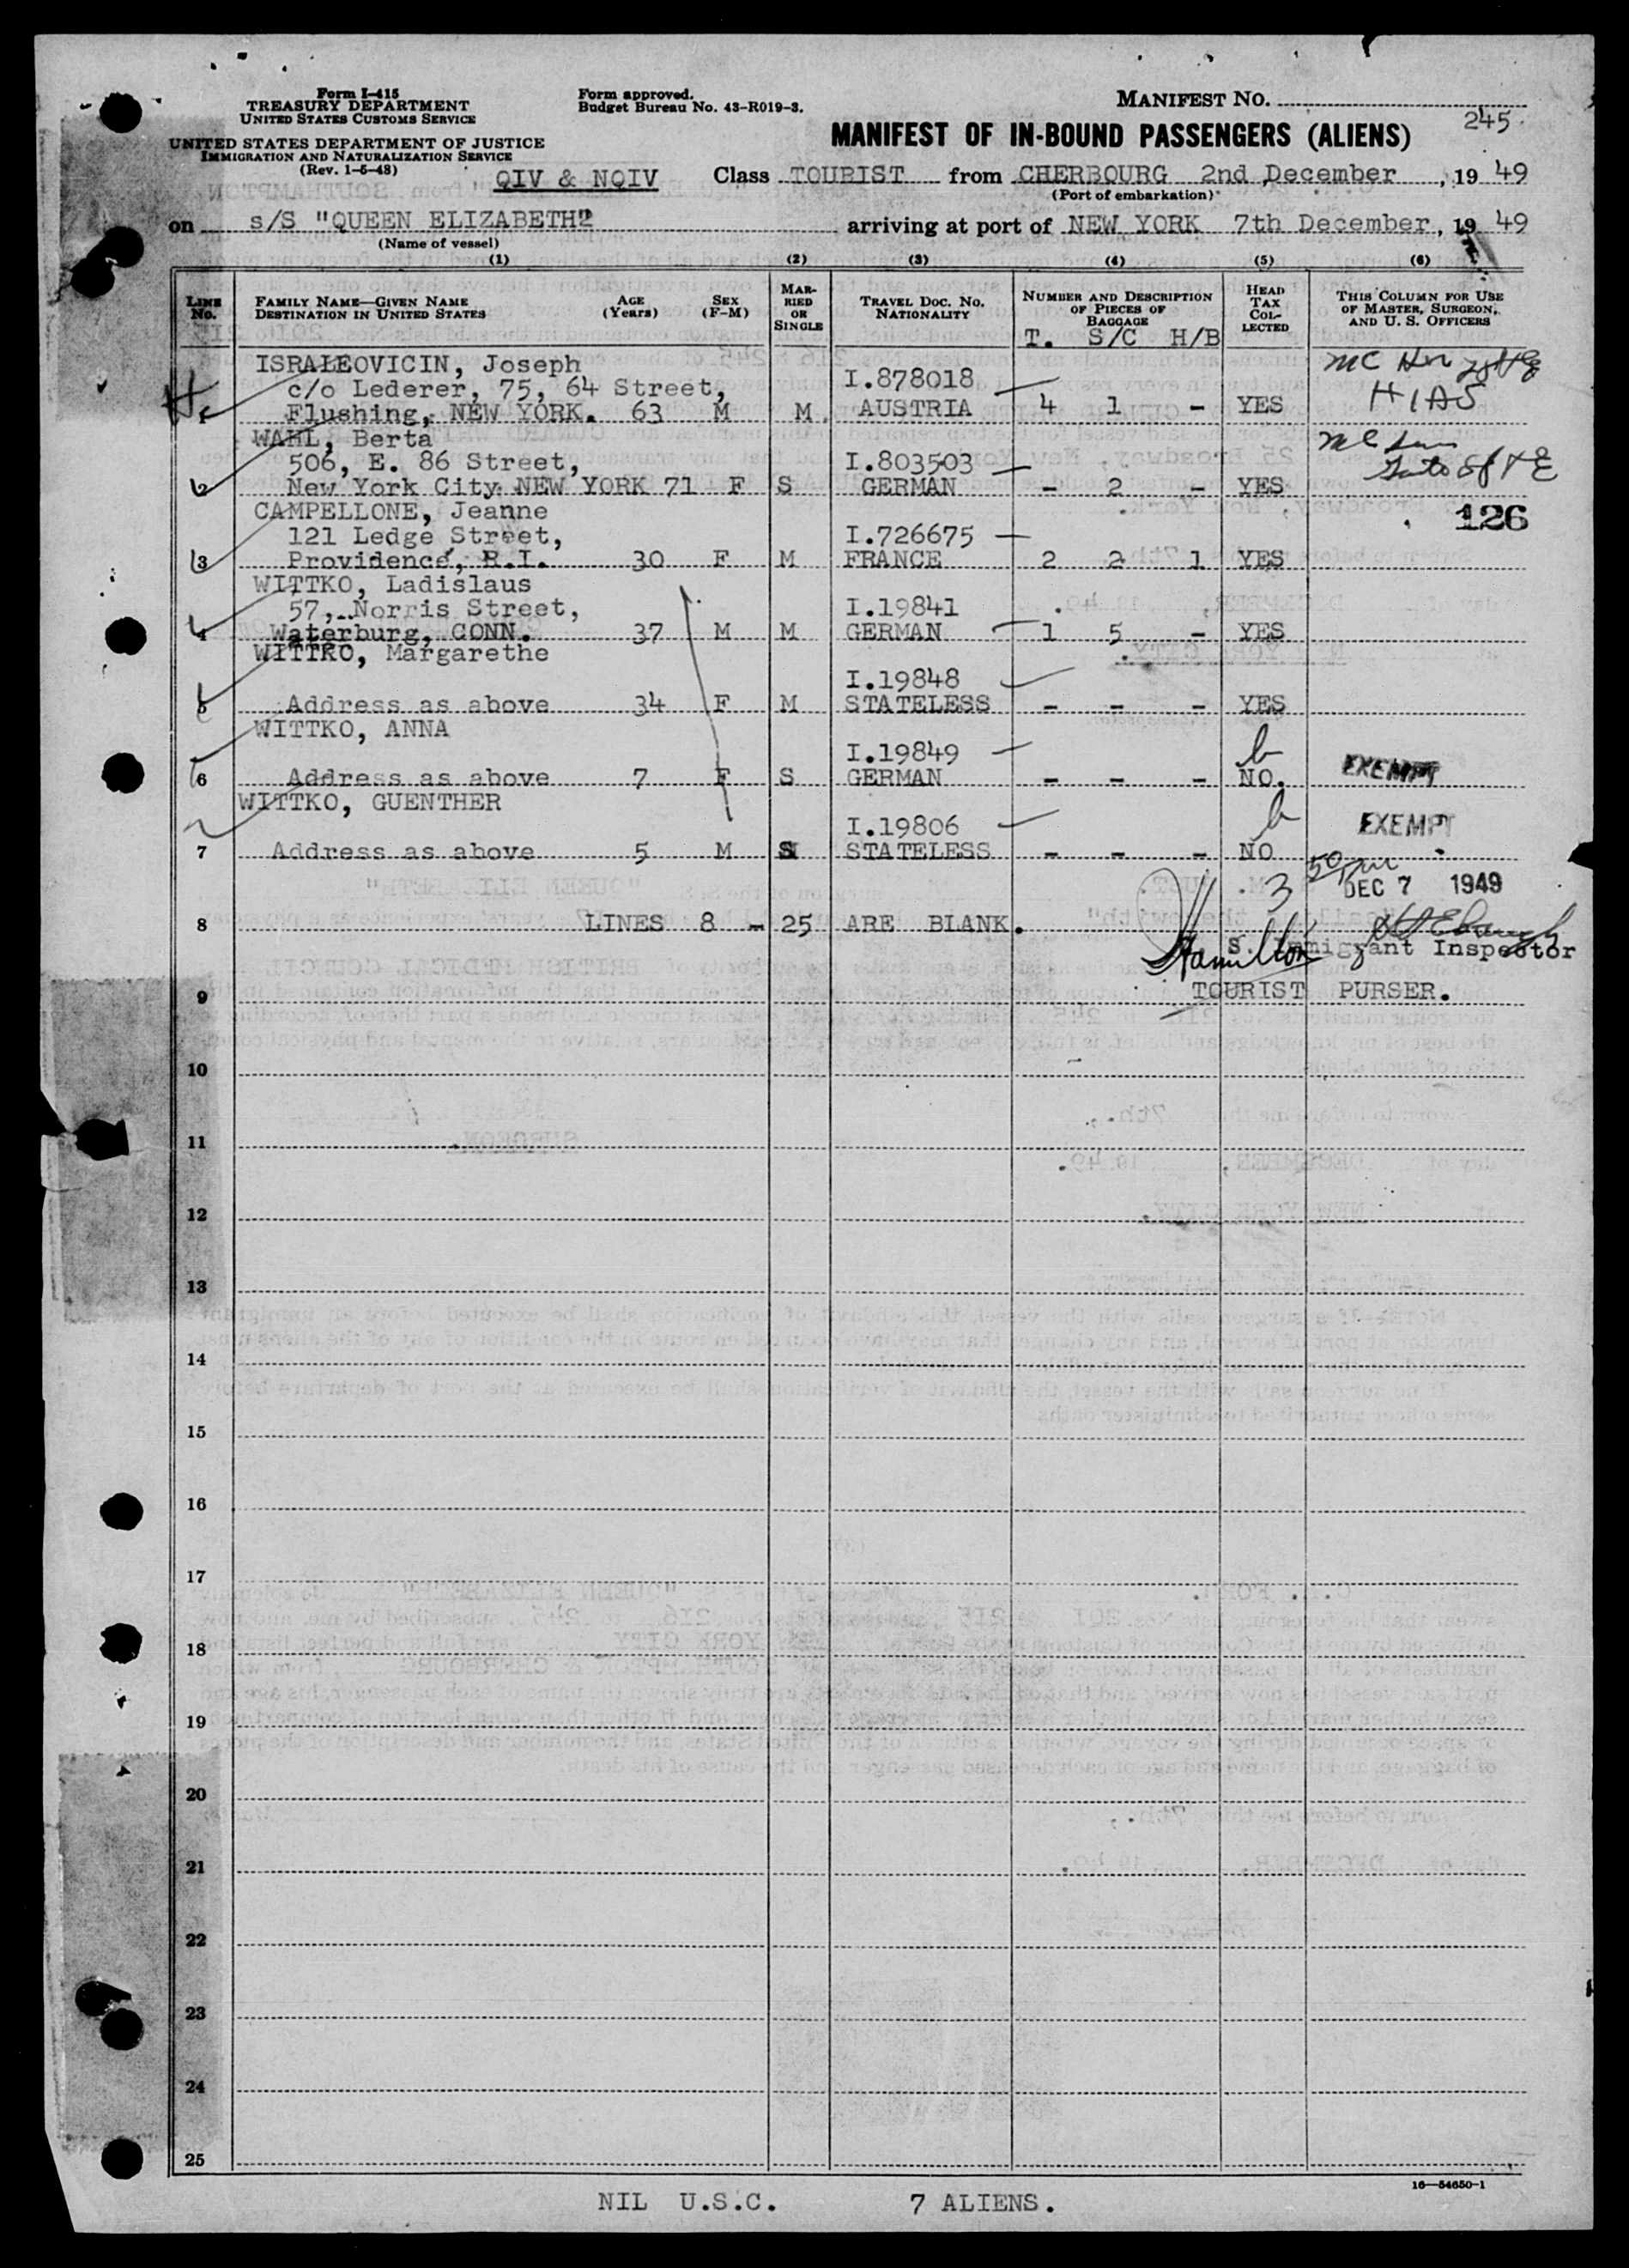 Form I-415
TREASURY DEPARTMENT
UNITED STATES CUSTOMS SERVICE
UNITED STATES DEPARTMENT OF JUSTICE
IMMIGRATION AND NATURALIZATION SERVICE
(Rev. 1-5-48)
Form approved.
Budget Bureau No. 43-R019-3.
MANIFEST NO.
245
MANIFEST OF IN-BOUND PASSENGERS (ALIENS)
QIV & NQIV Class TOURIST from CHERBOURG 2nd December, 19 49
(Port of embarkation)
on s/S "QUEEN ELIZABETH" arriving at port of NEW YORK 7th December, 19 49
(Name of vessel)
(1) (2) (3) (4) (5) (6)
LINE No. FAMILY NAME—GIVEN NAME DESTINATION IN UNITED STATES AGE (Years) SEX (F-M) MARRIED OR SINGLE TRAVEL DOC. NO. NATIONALITY NUMBER AND DESCRIPTION OF PIECES OF BAGGAGE HEAD TAX COLLECTED THIS COLUMN FOR USE OF MASTER, SURGEON, AND U. S. OFFICERS
T. S/C H/B
ISRALEOVICIN, Joseph
c/o Lederer, 75, 64 Street, I.878018
1 Flushing, NEW YORK. 63 M M. AUSTRIA 4 1 - YES HIAS
WAHL, Berta
506, E. 86 Street, I.803503
2 New York City. NEW YORK 71 F S GERMAN - 2 - YES
CAMPELLONE, Jeanne 126
121 Ledge Street, I.726675
3 Providence, R.I. 30 F M FRANCE 2 2 1 YES
WITTKO, Ladislaus
57, Norris Street, I.19841
4 Waterburg, CONN. 37 M M GERMAN 1 5 - YES
WITTKO, Margarethe
I.19848
5 Address as above 34 F M STATELESS - - - YES
WITTKO, ANNA
I.19849
6 Address as above 7 F S GERMAN - - - NO. EXEMPT
WITTKO, GUENTHER
I.19806 EXEMPT
7 Address as above 5 M S STATELESS - - - NO
3 DEC 7 1949
8 LINES 8 - 25 ARE BLANK.
Hamilton S. Immigrant Inspector
9 TOURIST PURSER.
10
11
12
13
14
15
16
17
18
19
20
21
22
23
24
25
16—54650-1
NIL U.S.C. 7 ALIENS.